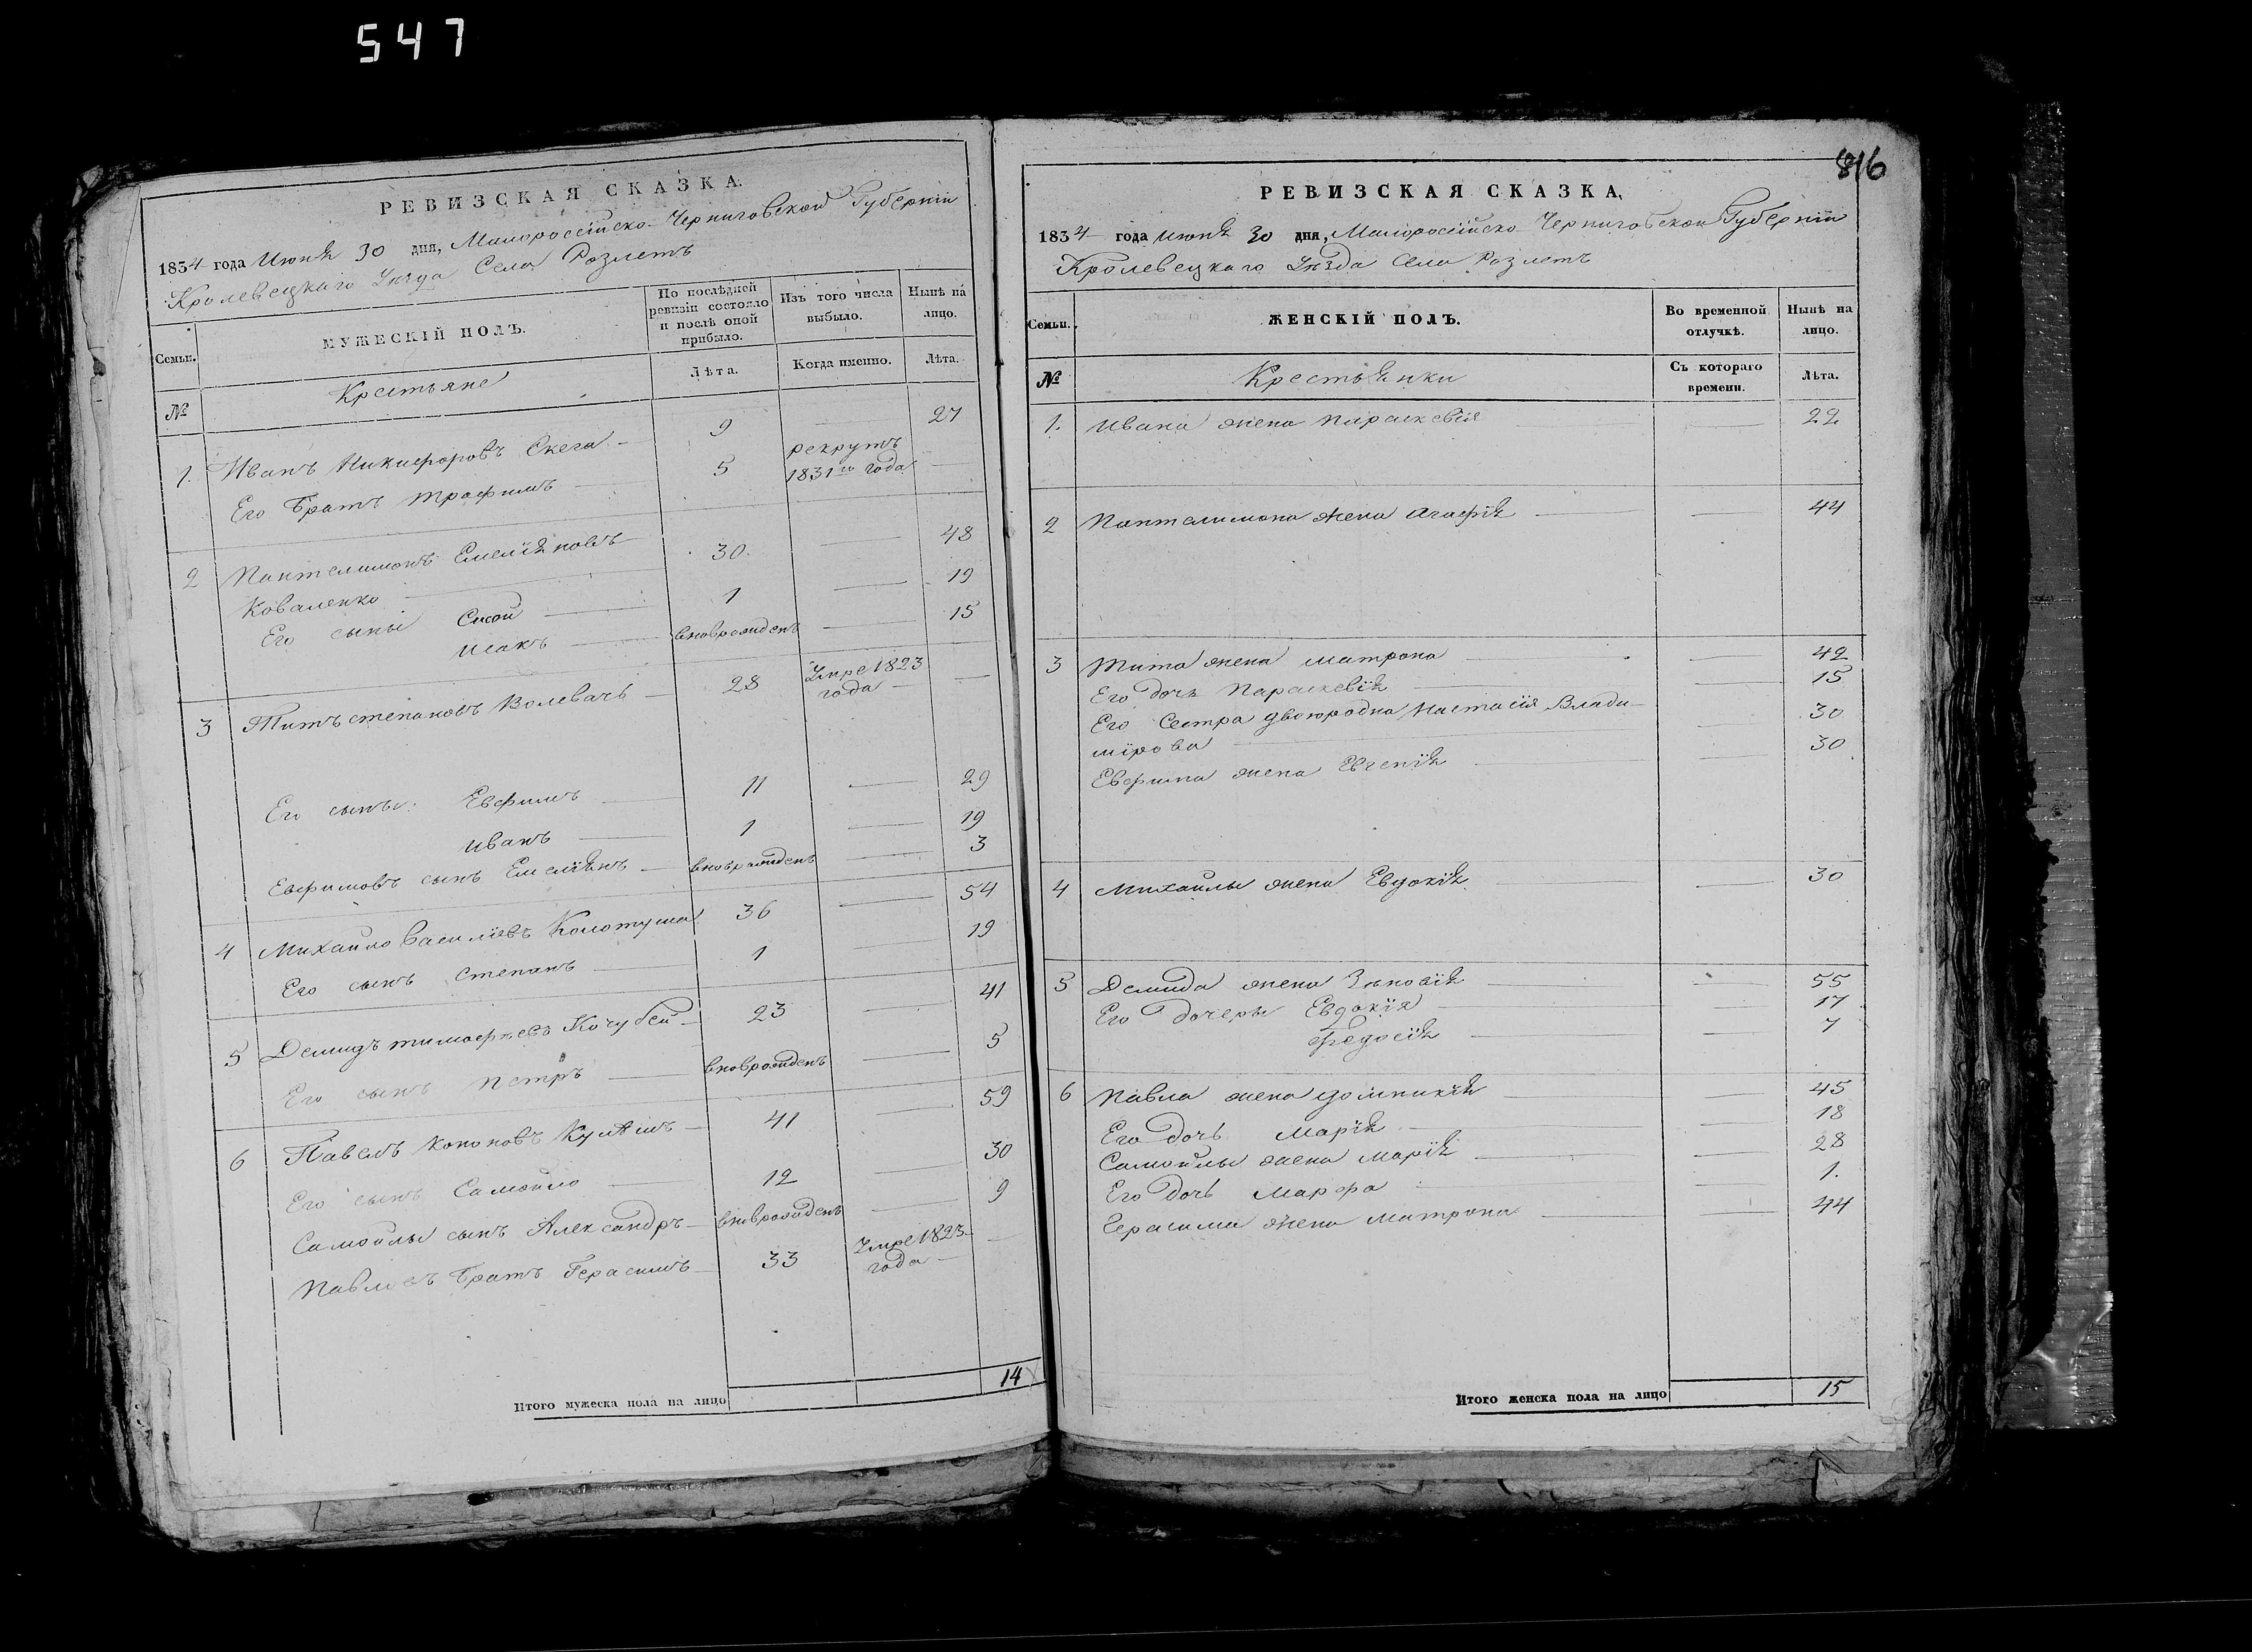 547
РЕВИЗСКАЯ СКАЗКА.
1834 года Июня 30 дня, Малороссійско Черниговской Губерніи
Кролевецкаго Уезда Села Розлетъ
Семьи.
МУЖЕСКІЙ ПОЛЪ.
По послѣдней ревизіи состояло и послѣ оной прибыло.
Изъ того числа выбыло.
Нынѣ на лицо.
№
Крестьяне
Лѣта.
Когда именно.
Лѣта.
1. Иванъ Никифоровъ Скега 9 27
Его Братъ Трофимъ 5 рекрутъ 1831го года
2 Пантелимонъ Емеліяновъ
Коваленко 30. 48
Его сыны Сисой 1 19
Исакъ вноврожденъ 15
3 Титъ степановъ Волевачь 28 Умре 1823 года
Его сыны: Евфимъ 11 29
иванъ 1 19
Евфимовъ сынъ Емеліянъ вноврожденъ 3
4 Михайло Василіевъ Колотуша 36 54
Его сынъ Степанъ 1 19
5 Демидъ тимофѣевъ Кочубей 23 41
Его сынъ Петръ вноврожденъ 5
6 Павелъ Кононовъ 41 59
Его сынъ Самойло 12 30
Самойлы сынъ Александръ вноврожденъ 9
Павловъ Братъ Герасимъ 33 Умре 1823 года
Итого мужеска пола на лицо 14
816
РЕВИЗСКАЯ СКАЗКА,
1834 года июня 30 дня, Малоросійско Черниговской Губерніи
Кролевецкаго Уезда Села Розлетъ
Семьи.
ЖЕНСКІЙ ПОЛЪ.
Во временной отлучкѣ.
Нынѣ на лицо.
№
Крестьянки
Съ котораго времени.
Лѣта.
1. Ивана жена Параскевія 22
2 Пантелимона жена Агафія 44
3 Тита жена матрона 42
Его дочь Параскевія 15
Его Сестра двоюродна Настасія Влади-
мірова 30
Евфима жена Евгенія 30
4 Михайлы жена Евдокія 30
5 Демида жена Зѣновія 55
Его дочеры Евдокія 17
Федосія 7
6 Павла жена домникія 45
Его дочь Марія 18
Самойлы жена Марія 28
Его дочь Марфа 1.
Герасима жена матрона 44
Итого женска пола на лицо 15